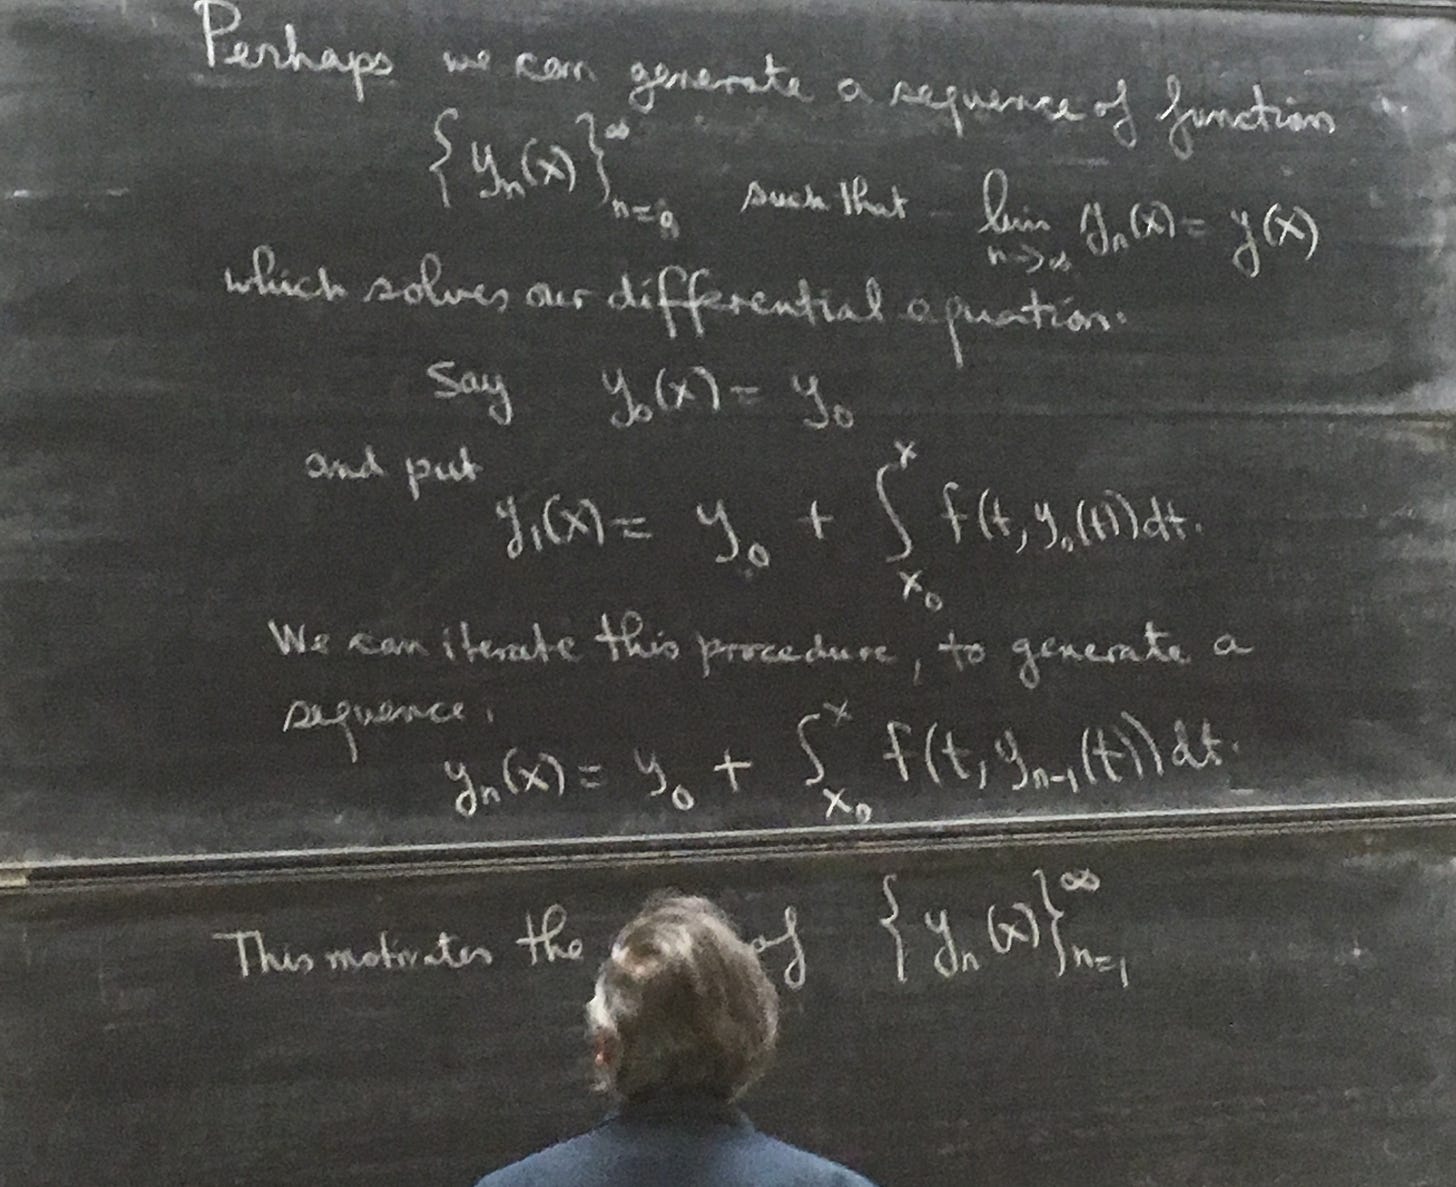 Perhaps we can generate a sequence of function
{y_n(x)}_{n=0}^∞ such that lim_{n→∞} y_n(x) = y(x)
which solves our differential equation.
Say y_0(x) = y_0
and put
y_1(x) = y_0 + ∫_{x_0}^x f(t, y_0(t)) dt.
We can iterate this procedure, to generate a
sequence.
y_n(x) = y_0 + ∫_{x_0}^x f(t, y_{n-1}(t)) dt.
This motivates the of {y_n(x)}_{n=1}^∞